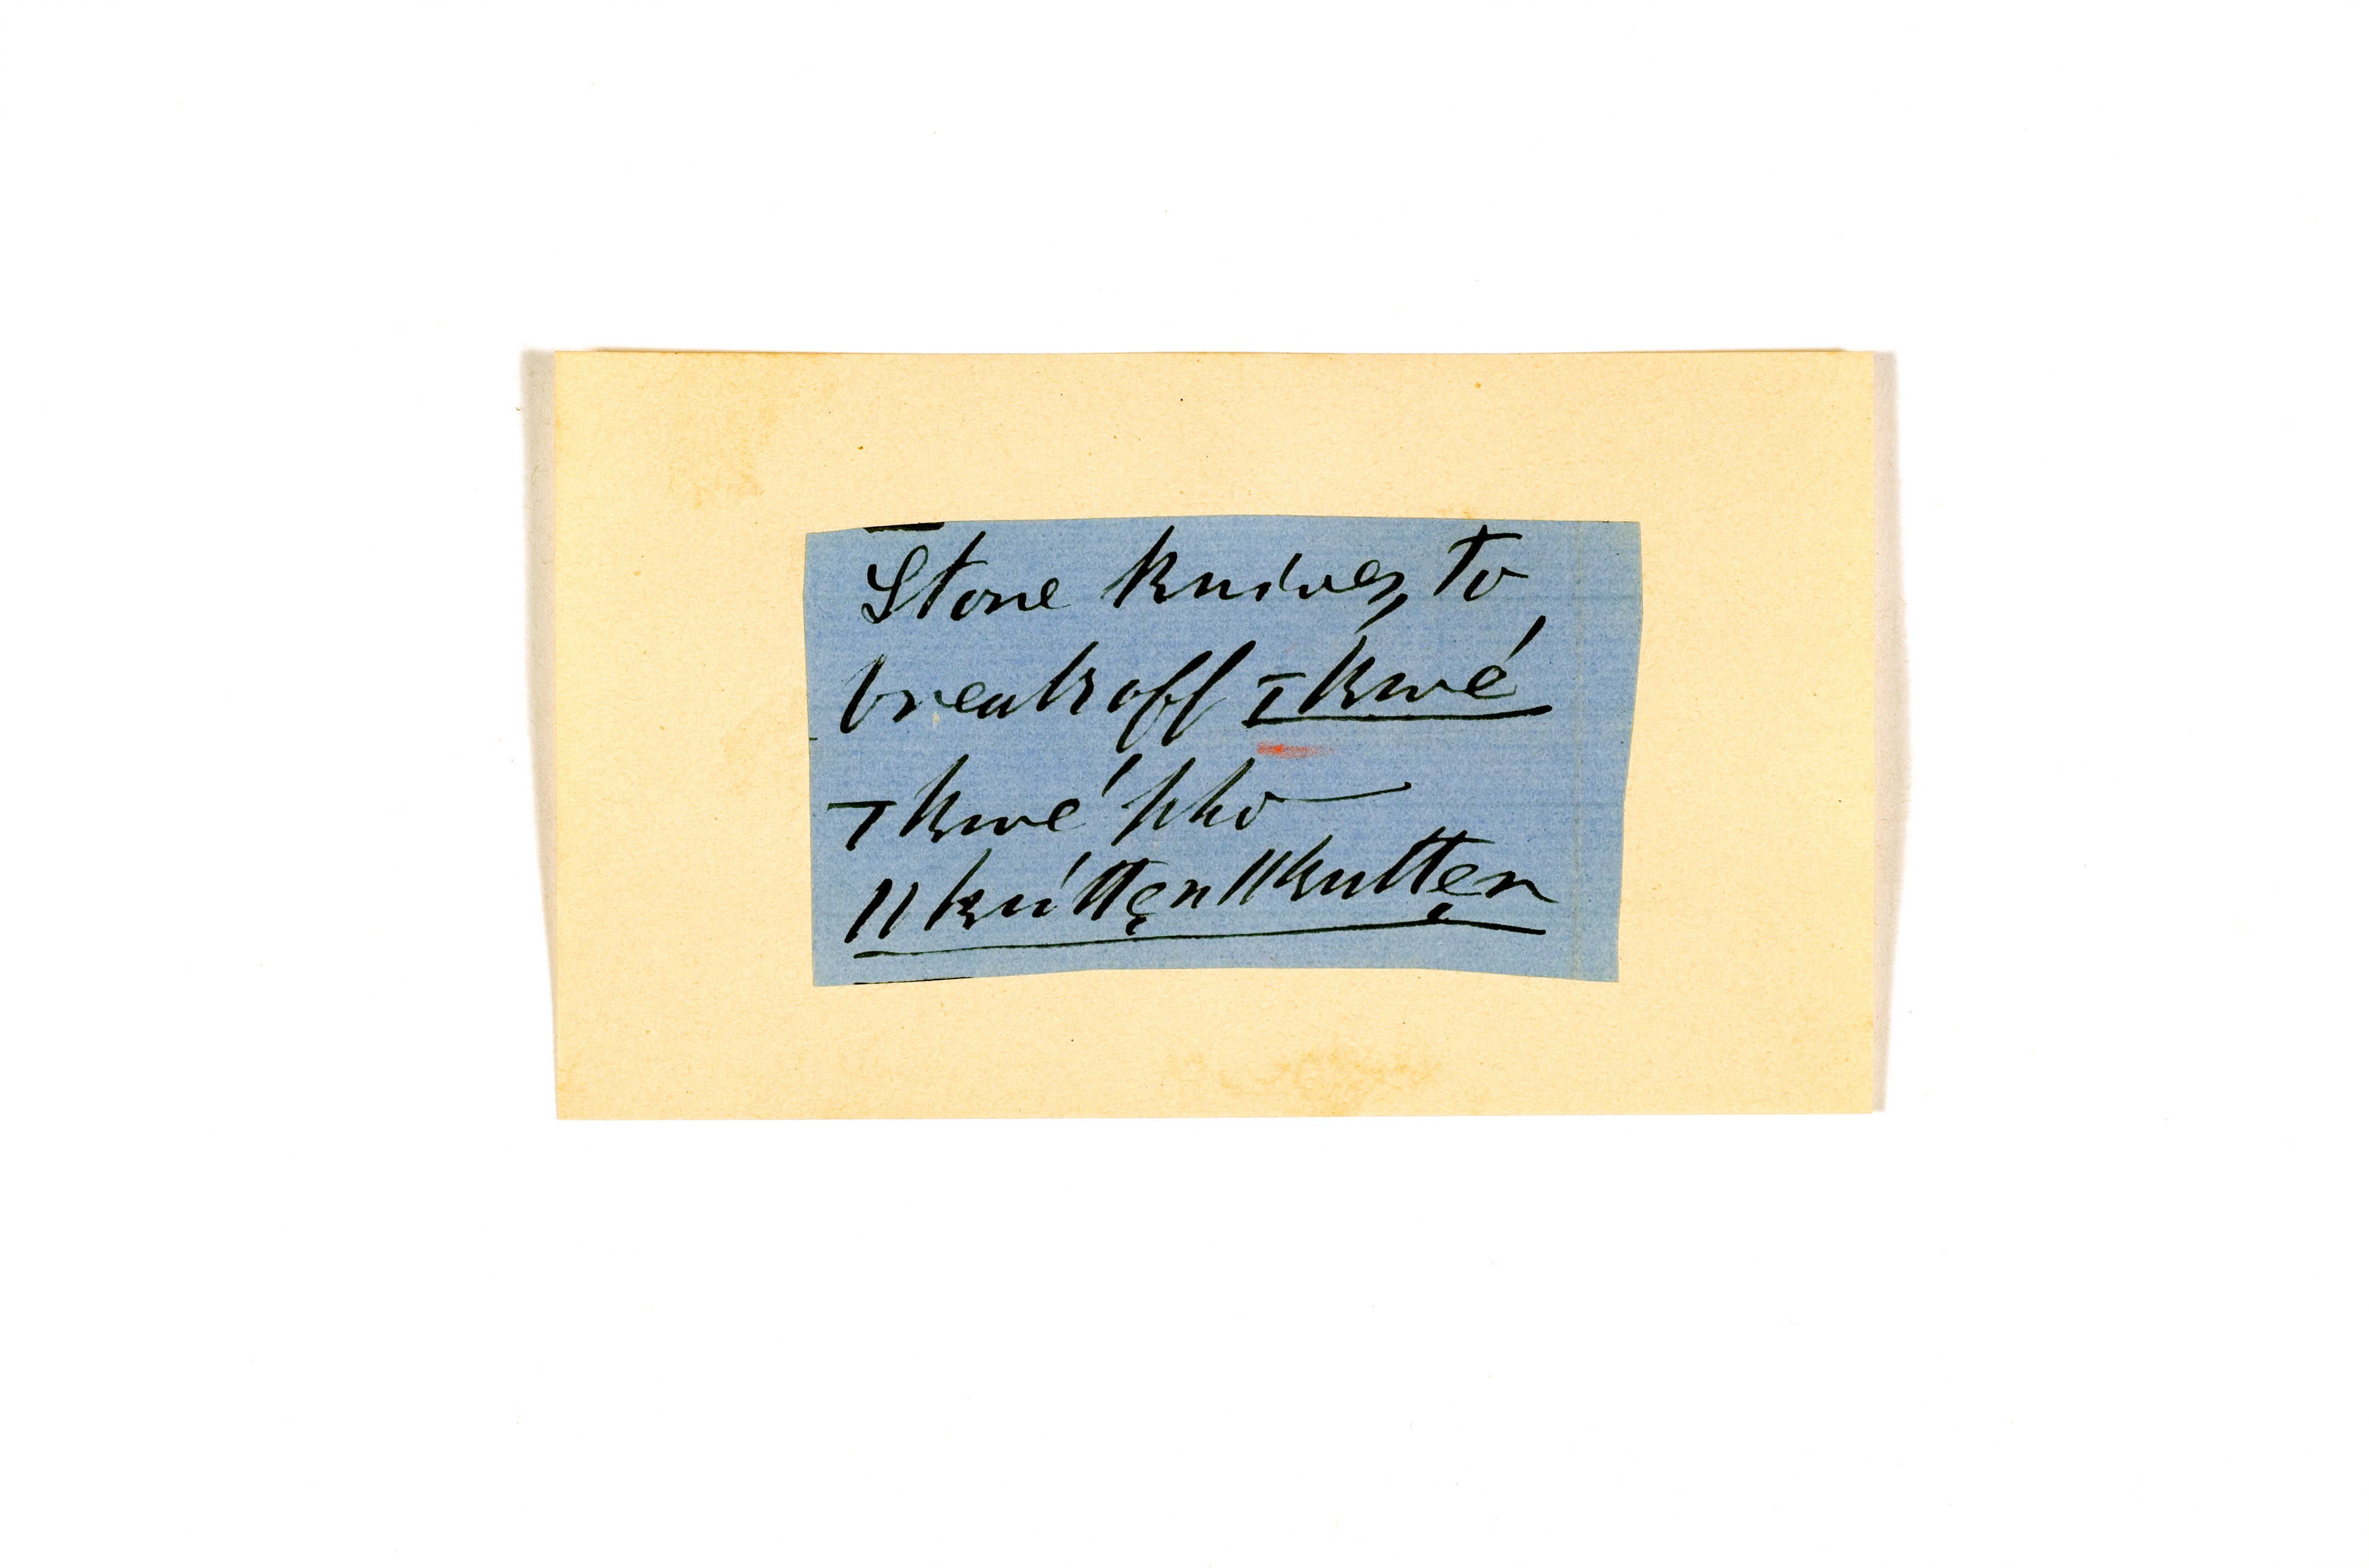 Stone knives, to
break off Ṯkwé
Ṯkwé pho
ǁkútten̥ ǁkutten̥